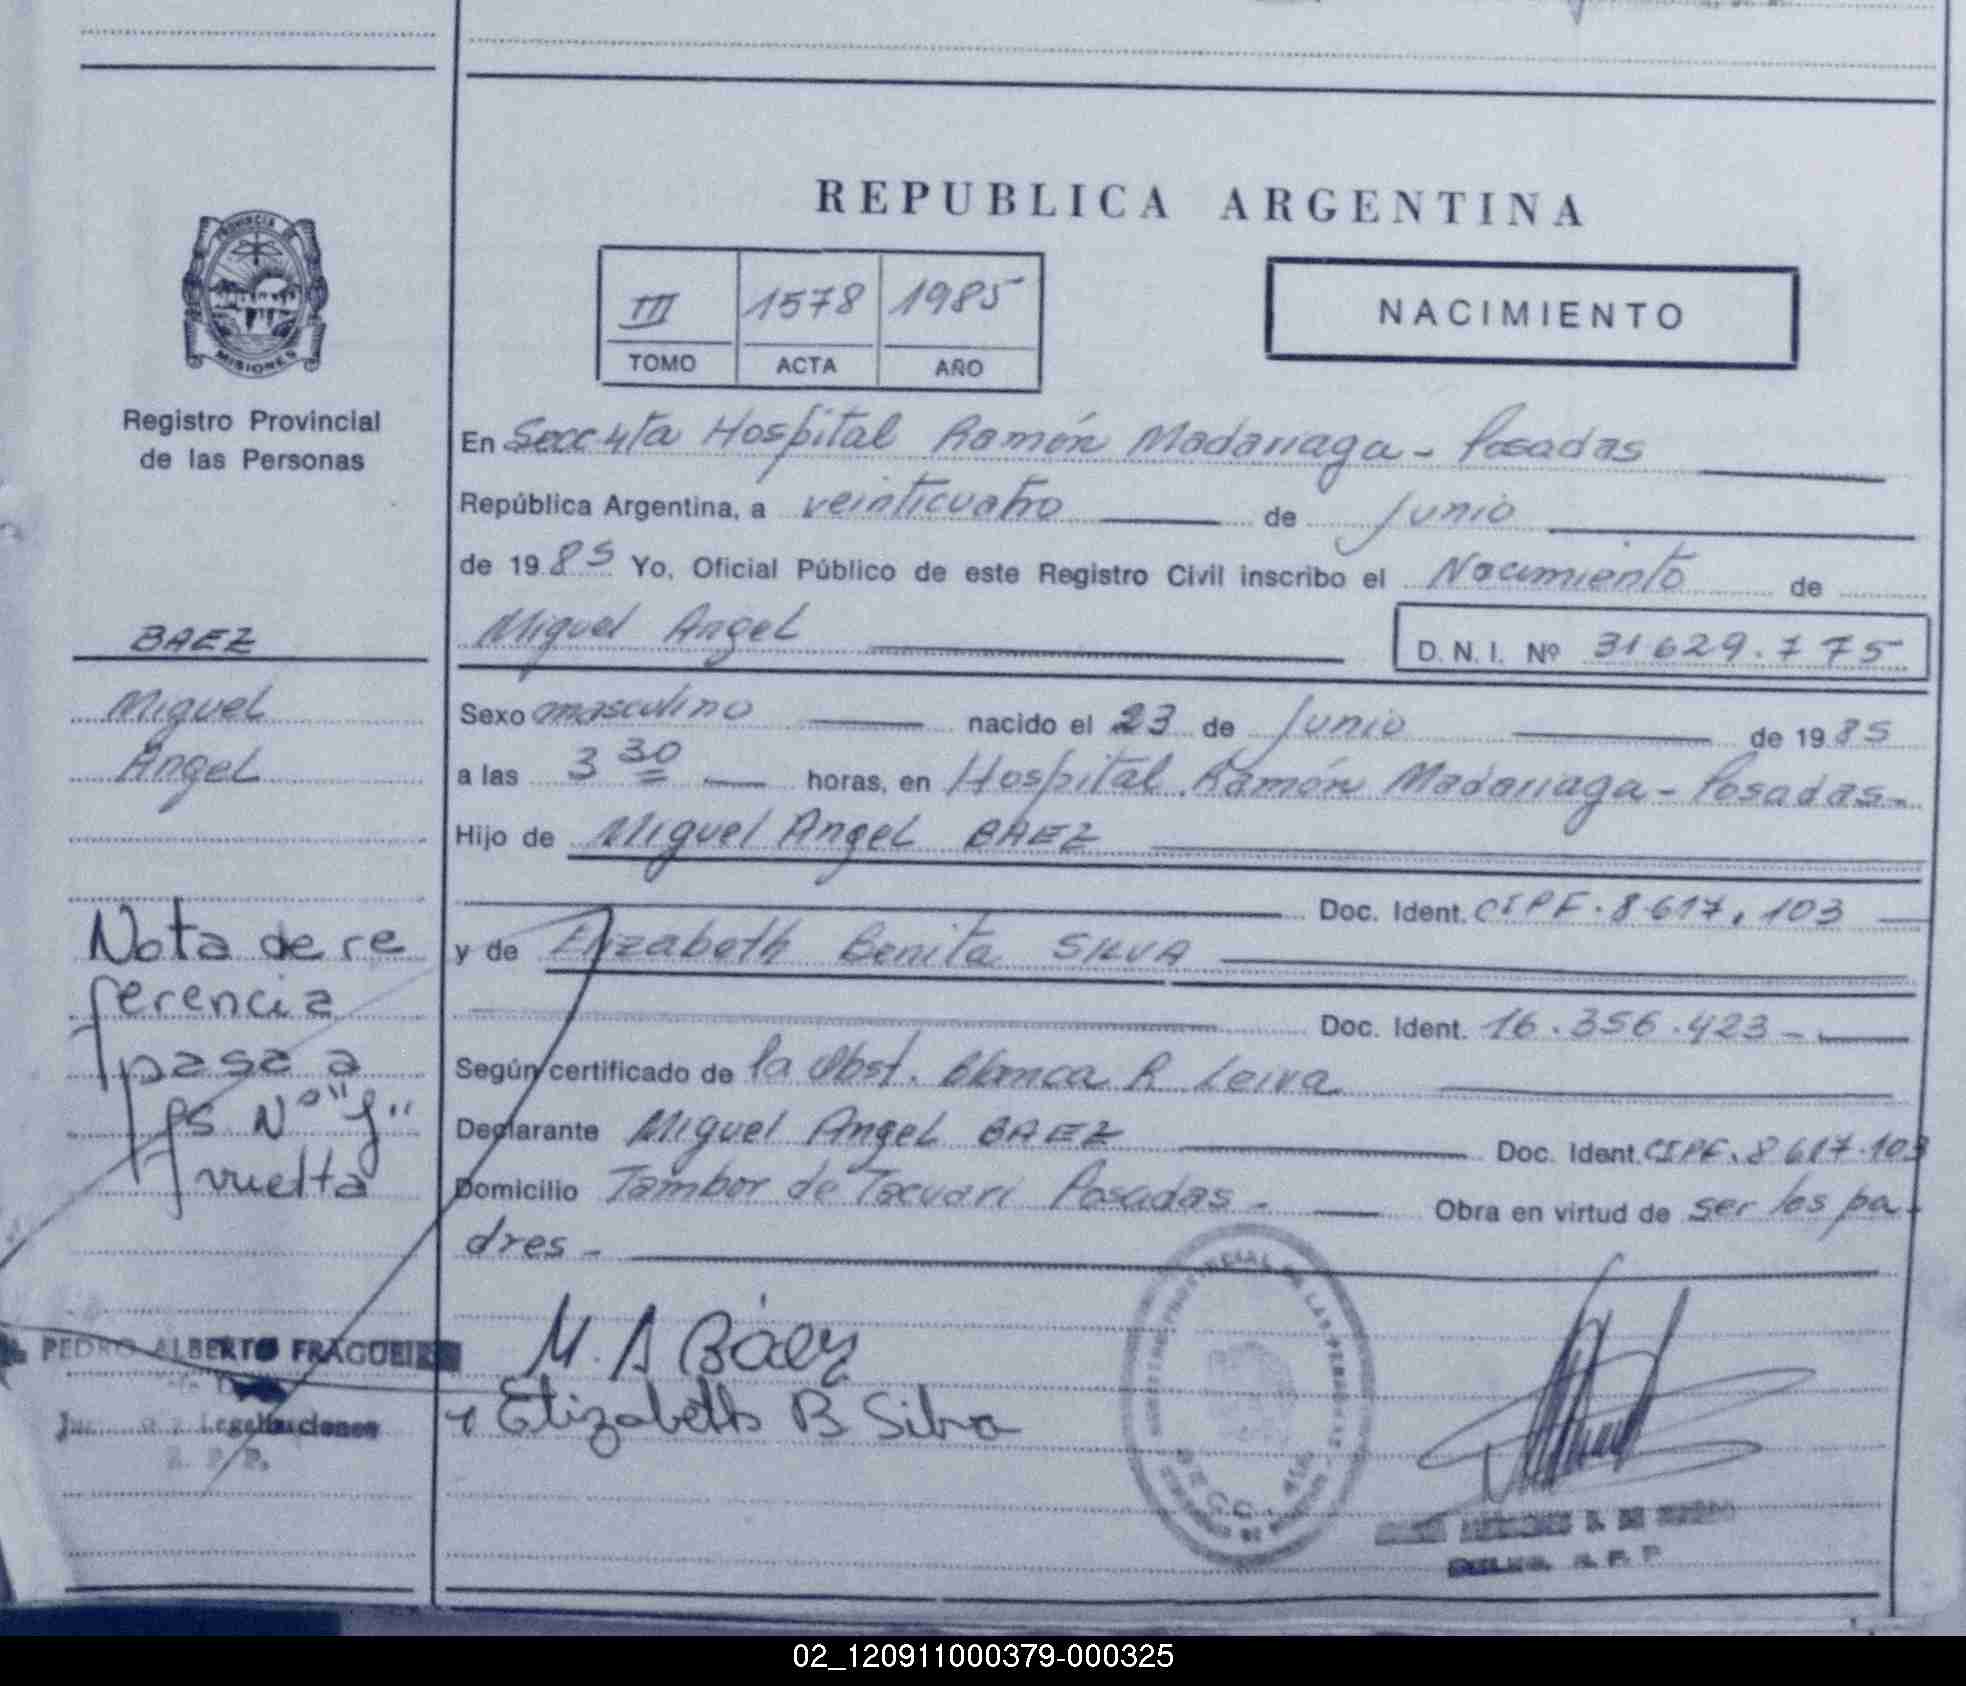 REPUBLICA ARGENTINA
PROVINCIA DE
MISIONES
Registro Provincial
de las Personas
III 1578 1985
TOMO ACTA AÑO
NACIMIENTO
En Secc 4ta Hospital Ramón Madariaga - Posadas
República Argentina, a veinticuatro de Junio
de 1985 Yo, Oficial Público de este Registro Civil inscribo el Nacimiento de
Miguel Angel D.N.I. Nº 31629.775
BAEZ
Miguel
Angel
Sexo masculino nacido el 23 de Junio de 1985
a las 3 30 horas, en Hospital Ramón Madariaga - Posadas -
Hijo de Miguel Angel BAEZ
Doc. Ident. CIPF. 8.617.103
y de Elizabeth Benita SILVA
Doc. Ident. 16.356.423 -
Según certificado de la Obst. Blanca R Leiva
Declarante Miguel Angel BAEZ Doc. Ident. CIPF. 8617.103
Domicilio Tambor de Tacuari Posadas - Obra en virtud de ser los pa-
dres -
Nota de re
ferencia
pasa a
fs Nº "J"
vuelta
PEDRO ALBERTO
Legalizaciones
M. A Báez
Elizabeth B Silva
02_120911000379-000325